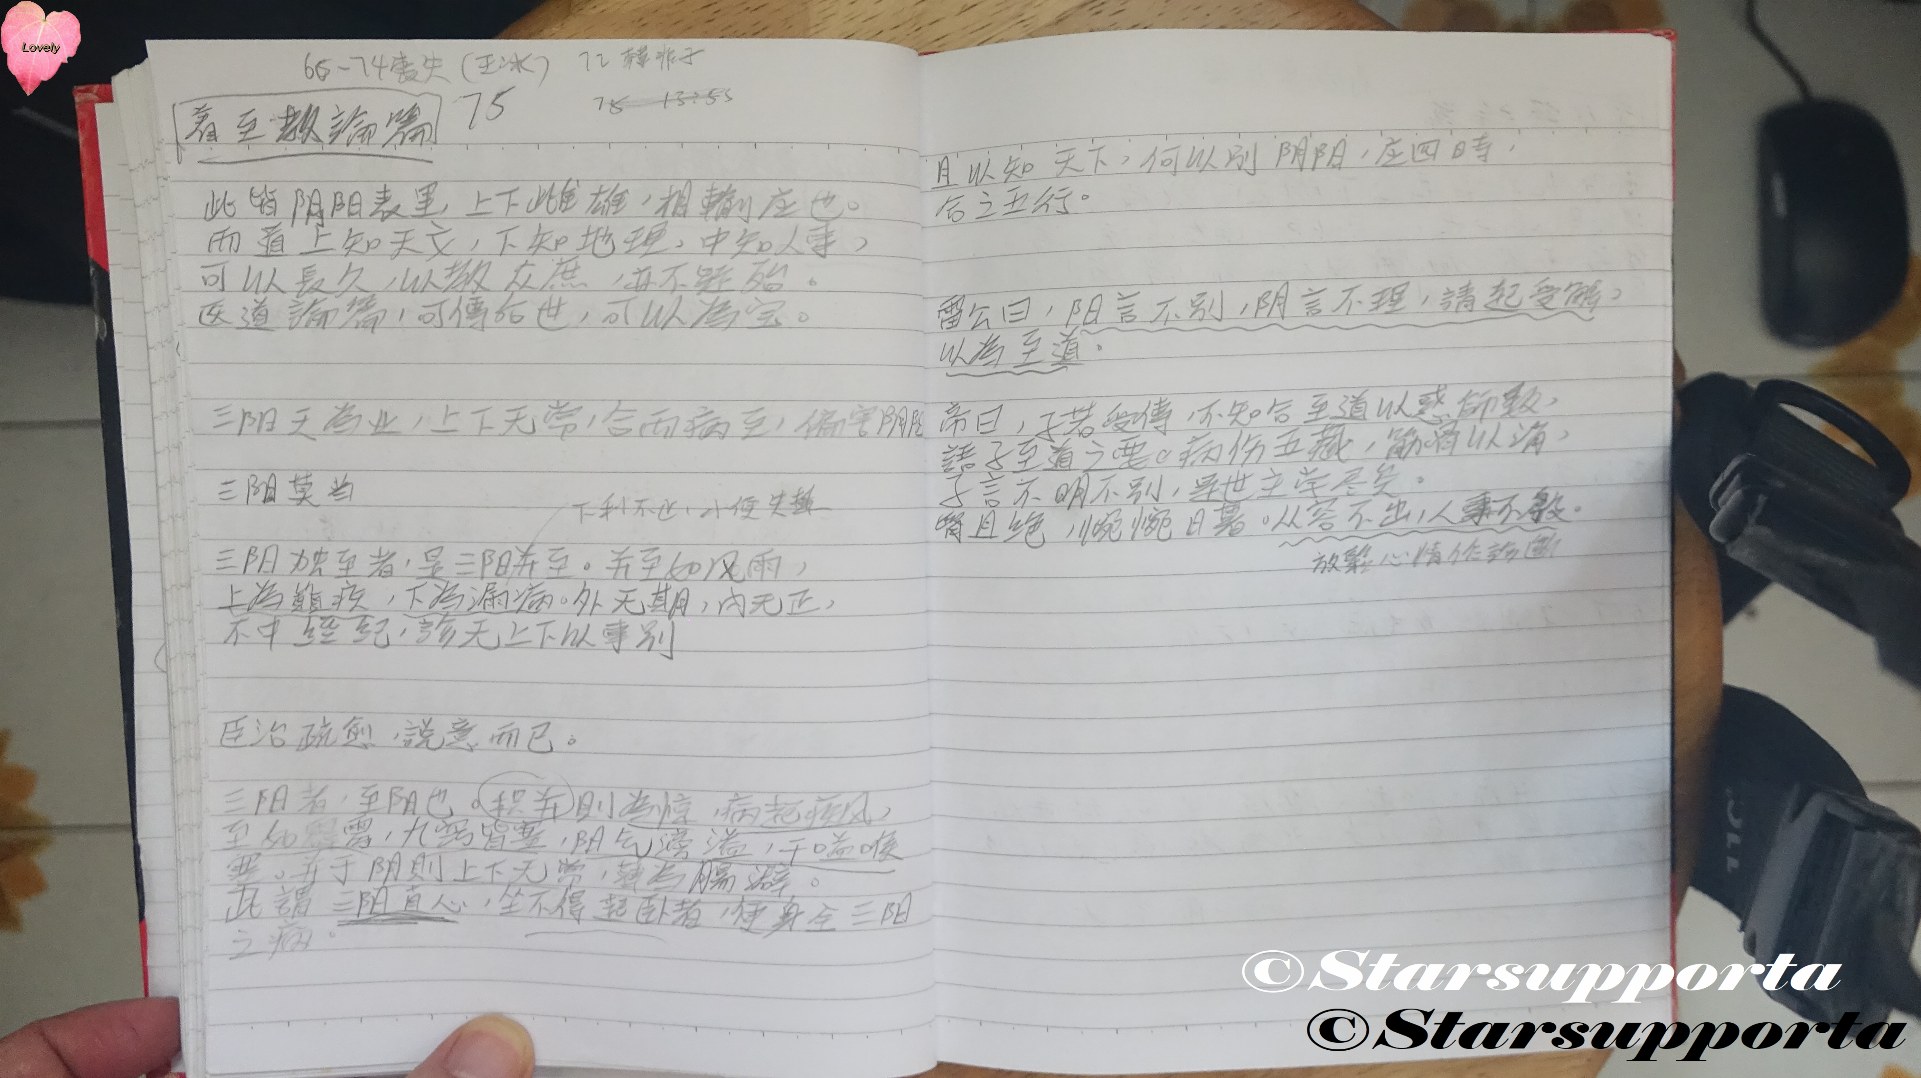 Lovely
66-74喪失(王冰) 72 韓非子
著至教論篇 75
75 13:53
此皆阴阳表里,上下雌雄,相輸应也。
而道上知天文,下知地理,中知人事,
可以長久,以教众庶,亦不疑殆。
医道論篇,可傳后世,可以為宝。
三阳天為业,上下无常,合而病至,偏害阴阳
三阳莫当
下利不止,小便失禁
三阳独至者,是三阳并至。并至如风雨,
上為巔疾,下為漏病。外无期,内无正,
不中經紀,診无上下以事别
臣治疏愈,說意而已。
三阳者,至阳也。积并則為惊,病起疾风,
至如霹雷,九窍皆塞,阳气滂溢,干嗌喉
塞。并于阴則上下无常,薄為腸澼。
此謂三阳直心,坐不得起卧者,便身全三阳
之病。
且以知天下,何以别阴阳,应四時,
合之五行。
雷公曰,阳言不别,阴言不理,請起受解,
以為至道。
帝曰,子若受傳,不知合至道以惑師教,
語子至道之要。病伤五藏,筋骨以消,
子言不明不别,是世主学尽矣。
腎且绝,惋惋日暮。从容不出,人事不殷。
放鬆心情作診断
©Starsupporta
©Starsupporta